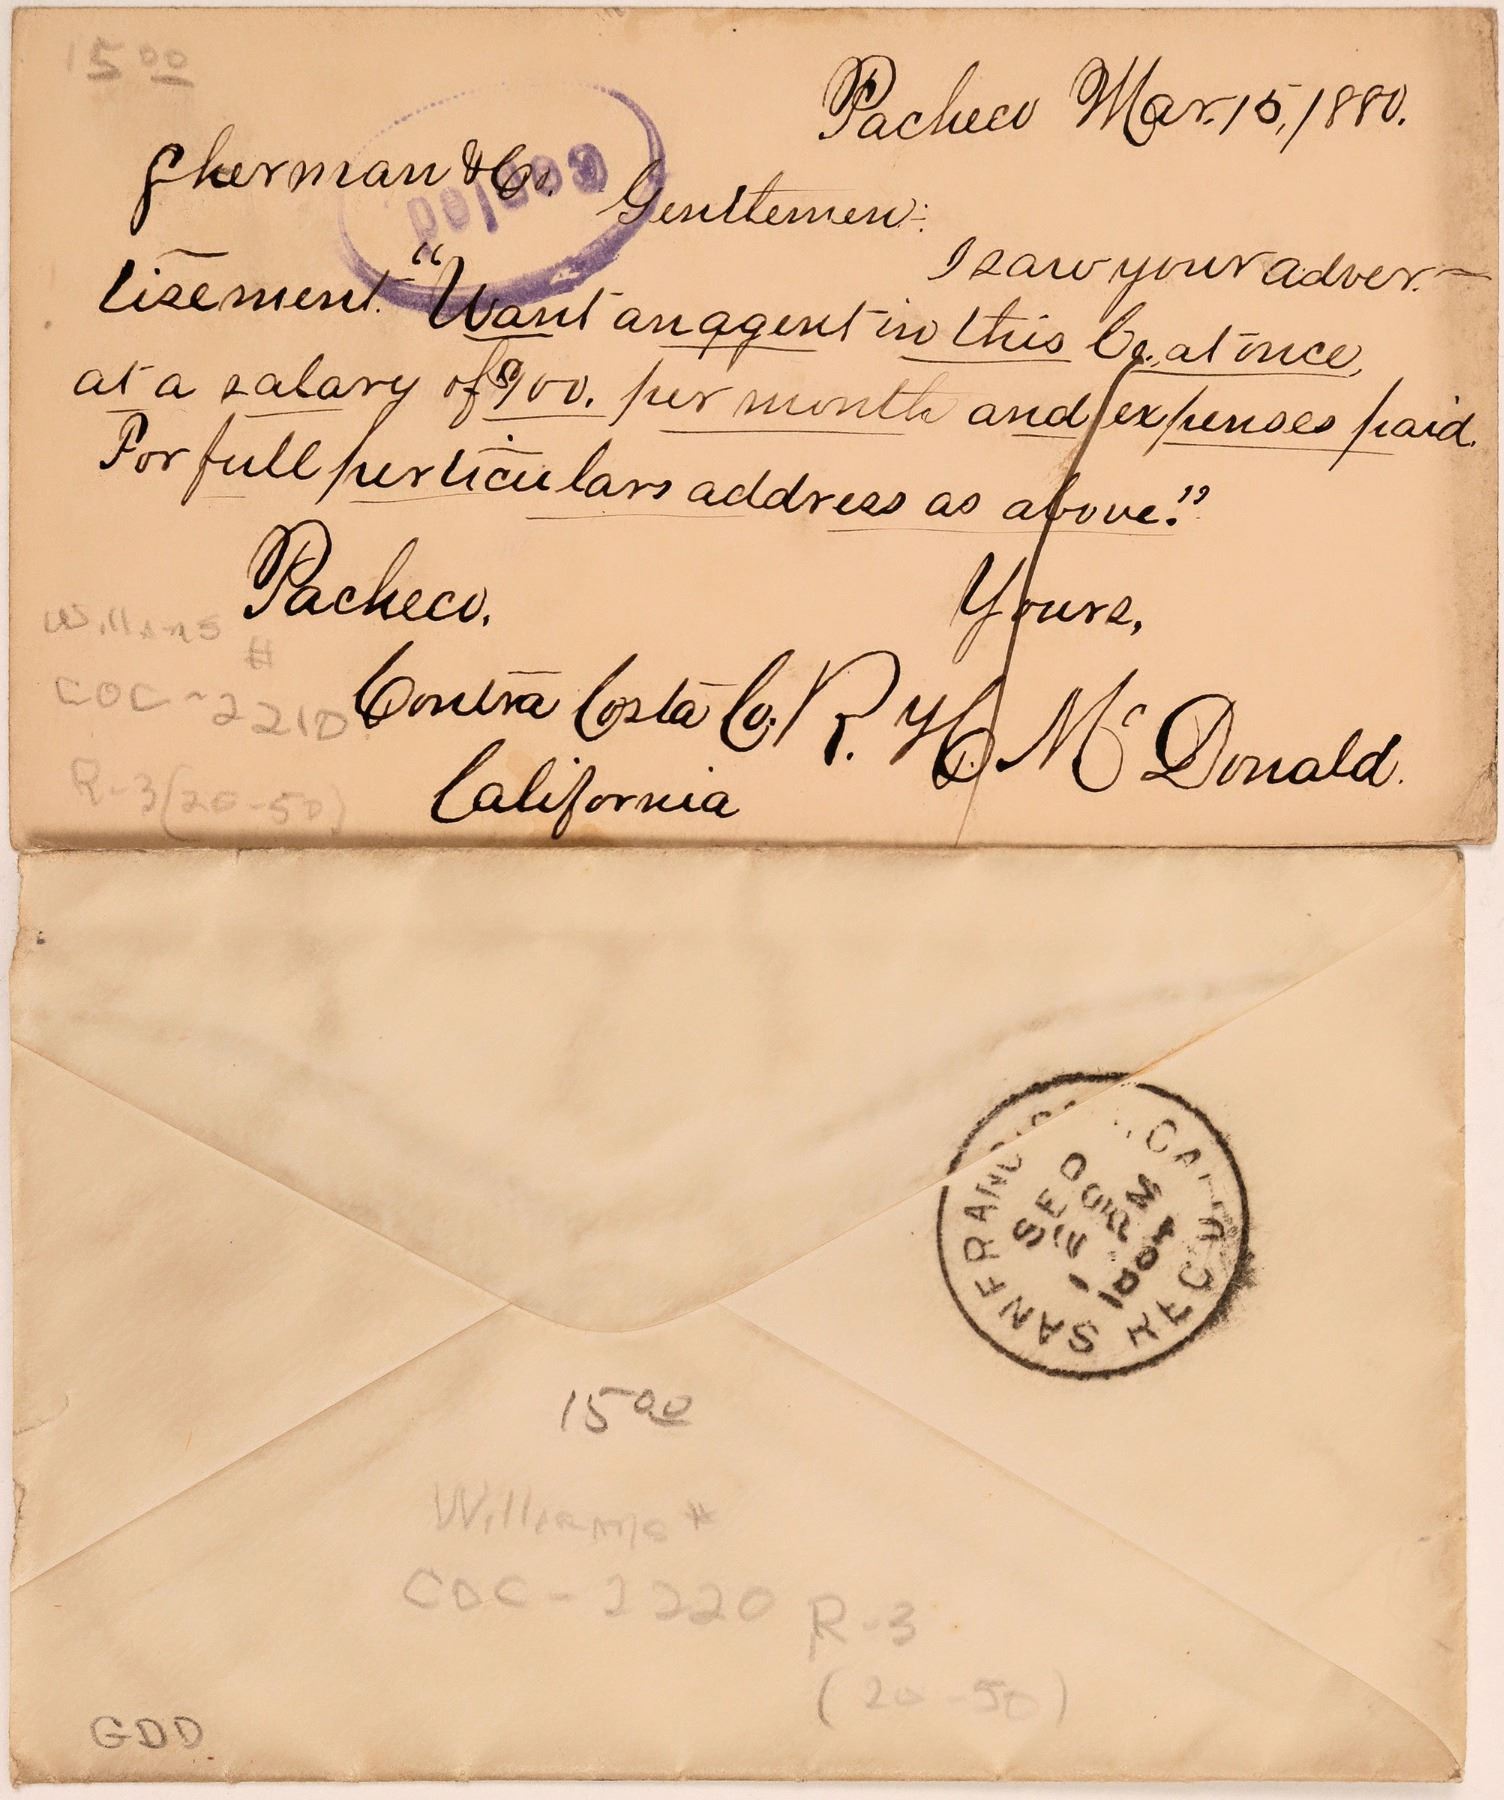 15 00
Pacheco Mar. 15, 1880.
Sherman & Co.
Gentlemen:
I saw your adver-
tisement. "Want an agent in this Co. at once,
at a salary of $100. per month and expenses paid.
For full perticulars address as above."
Pacheco. Yours,
Contra Costa Co. R. H. McDonald.
California
Williams #
COC-2210
R-3(20-50)
SAN FRANCISCO, CAL.
REC'D
SEP
PM
15 00
Williams #
COC-2220 R-3
(20-50)
GDD